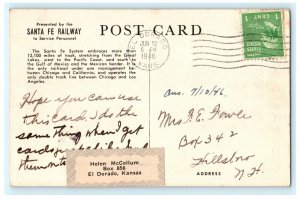 Presented by the
SANTA FE RAILWAY
to Service Personnel
POST CARD
The Santa Fe System embraces more than
13,100 miles of track, stretching from the Great
Lakes, west to the Pacific Coast, and south to
the Gulf of Mexico and the Mexican border. It
is the only railroad under one management be-
tween Chicago and California, and operates the
only double track line between Chicago and Los
Angeles.
JUN
5 PM
1946
KANS.
1 CENT 1
Hope you can use
this card. I do the
same thing when I get
cards
them
Helen McCollum
Box 856
El Dorado, Kansas
Ans. 7/10/46.
Mrs. F. E. Fowle
Box 342
Hillsboro
N.H.
ADDRESS